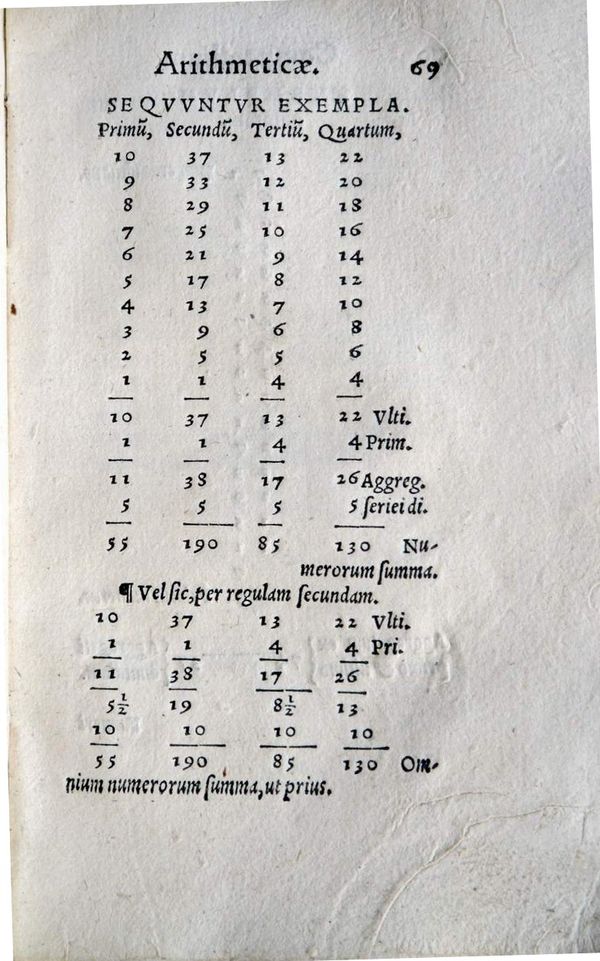 Arithmeticæ. 69
SEQVVNTVR EXEMPLA.
Primũ, Secundũ, Tertiũ, Quartum,
10 37 13 22
9 33 12 20
8 29 11 18
7 25 10 16
6 21 9 14
5 17 8 12
4 13 7 10
3 9 6 8
2 5 5 6
1 1 4 4
10 37 13 22 Vlti.
1 1 4 4 Prim.
11 38 17 26 Aggreg.
5 5 5 5 ſeriei di.
55 190 85 130 Nu-
merorum ſumma.
¶ Vel ſic, per regulam ſecundam.
10 37 13 22 Vlti.
1 1 4 4 Pri.
11 38 17 26
5½ 19 8½ 13
10 10 10 10
55 190 85 130 Om-
nium numerorum ſumma, ut prius.